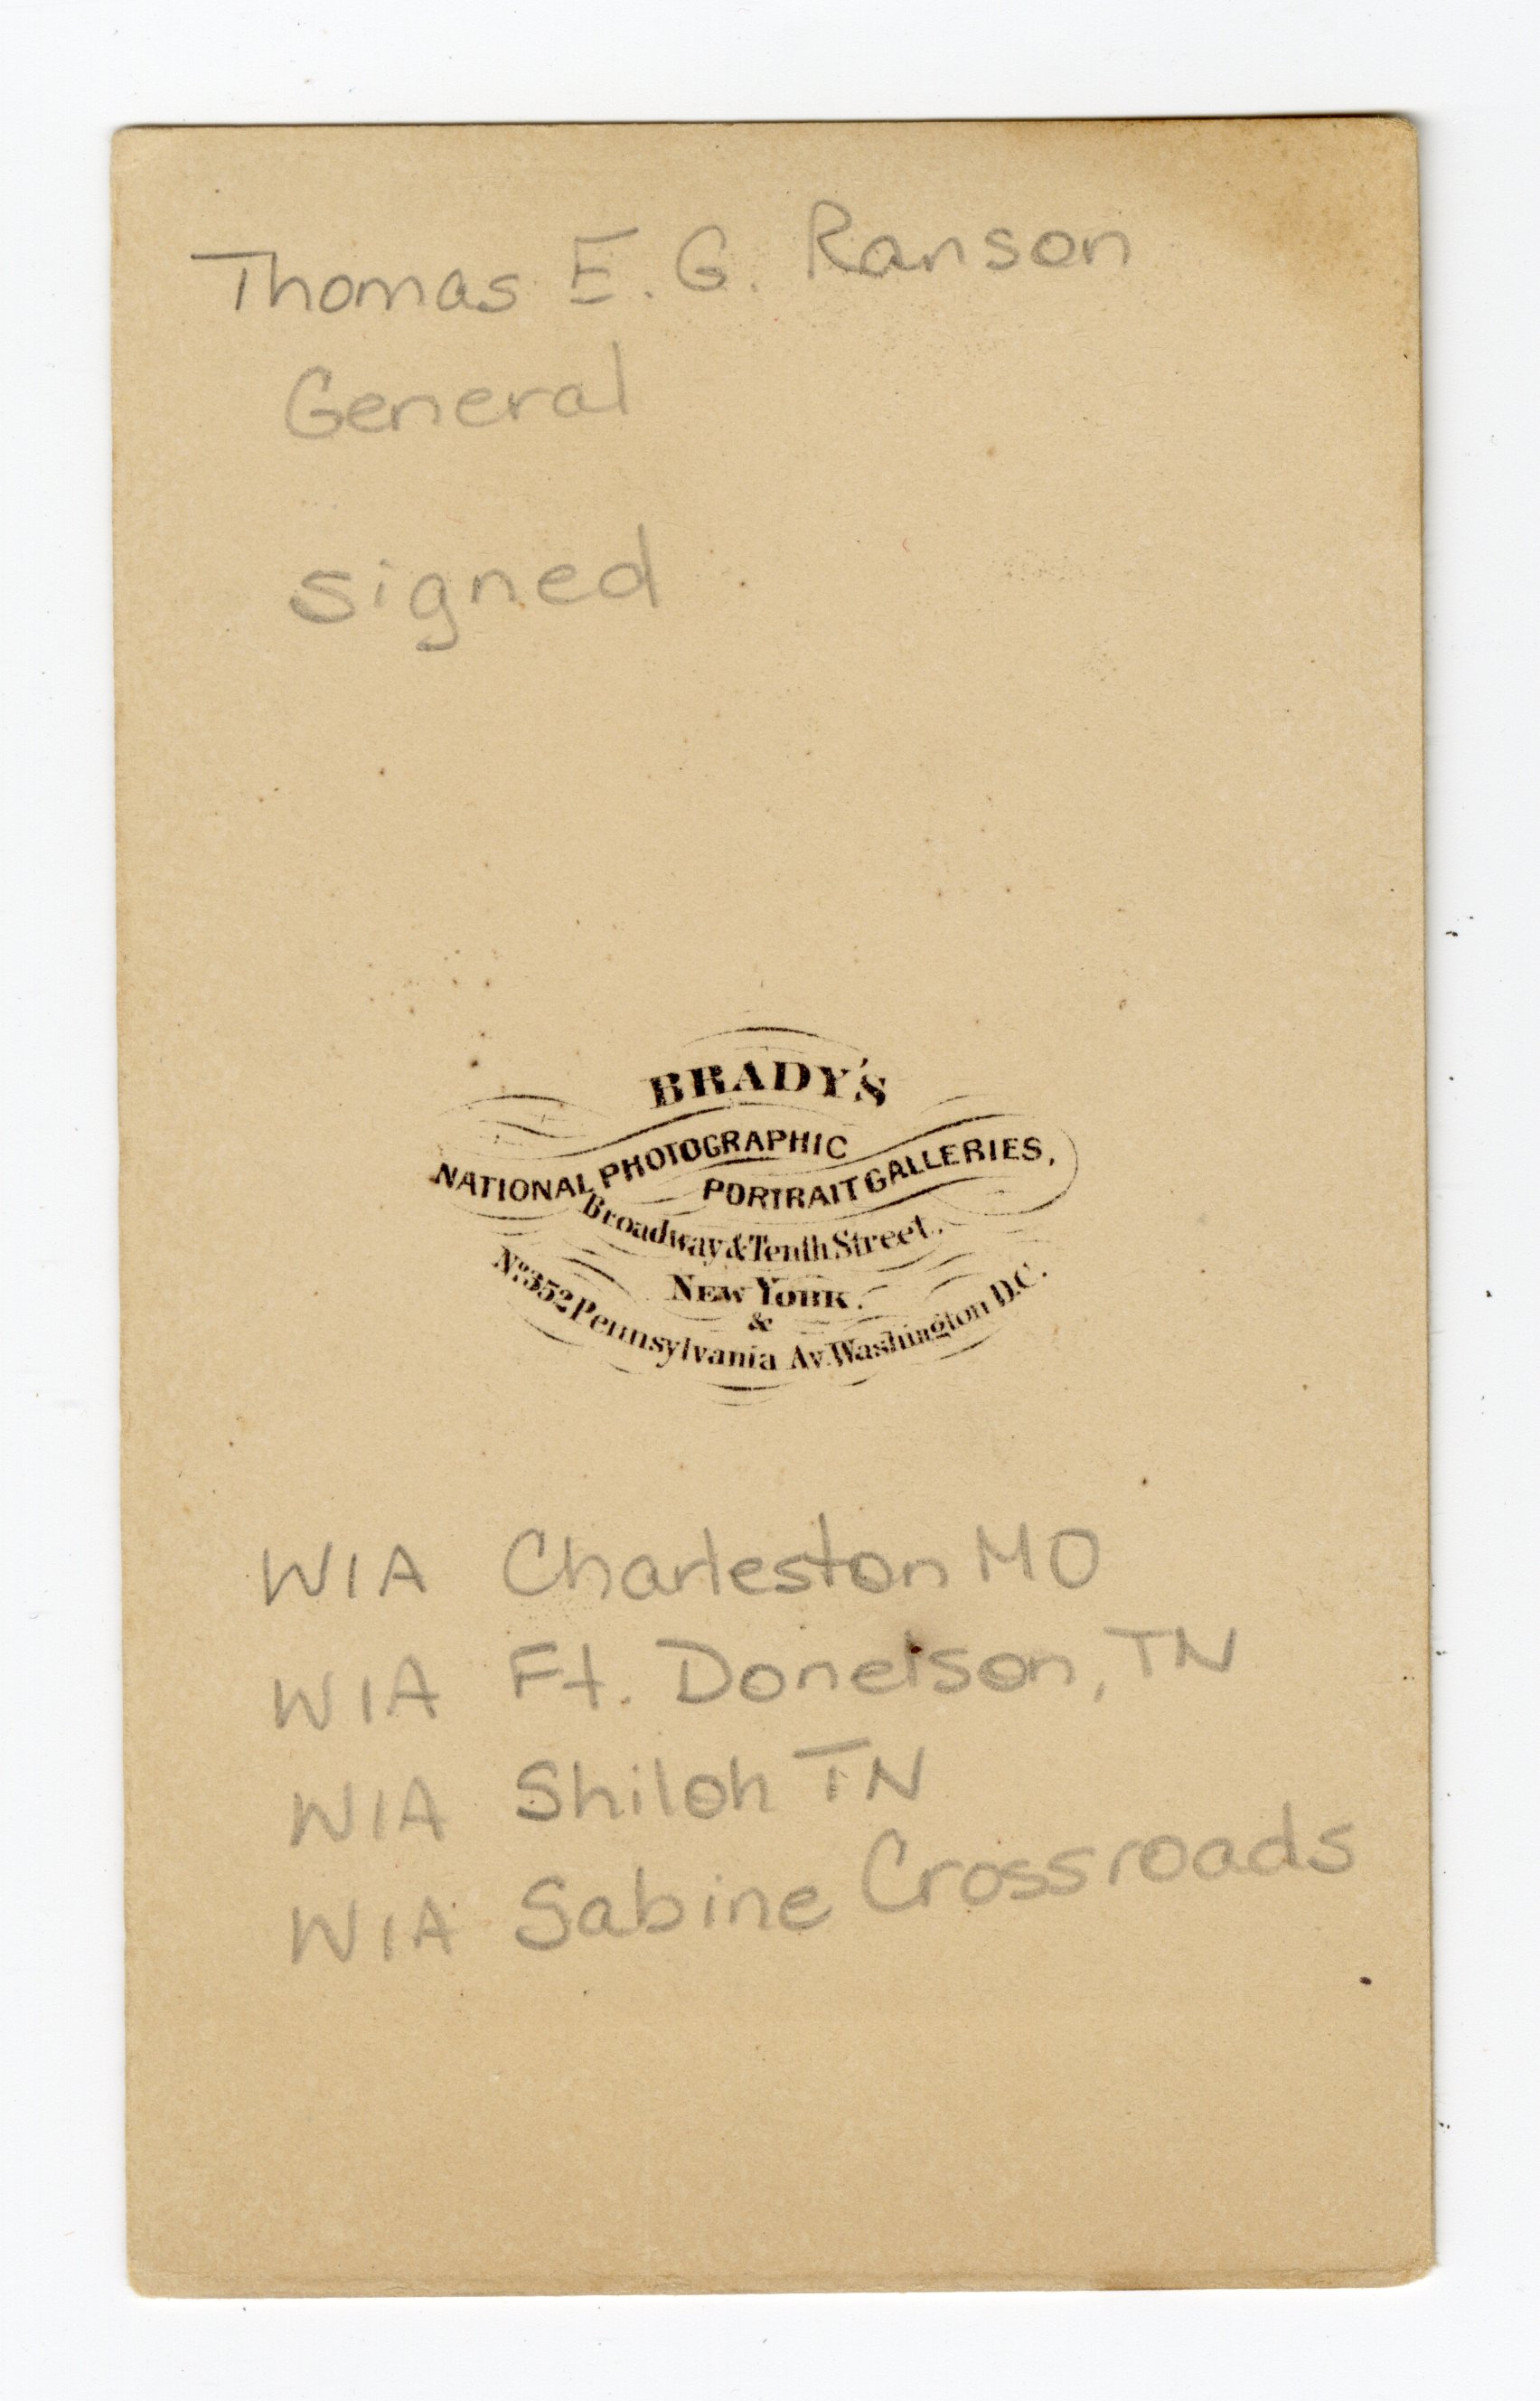 Thomas E. G. Ranson
General
signed
BRADY'S
NATIONAL PHOTOGRAPHIC
PORTRAIT GALLERIES,
Broadway & Tenth Street.
NEW YORK.
&
No. 352 Pennsylvania Av. Washington D.C.
WIA Charleston MO
WIA Ft. Donelson, TN
WIA Shiloh TN
WIA Sabine Crossroads